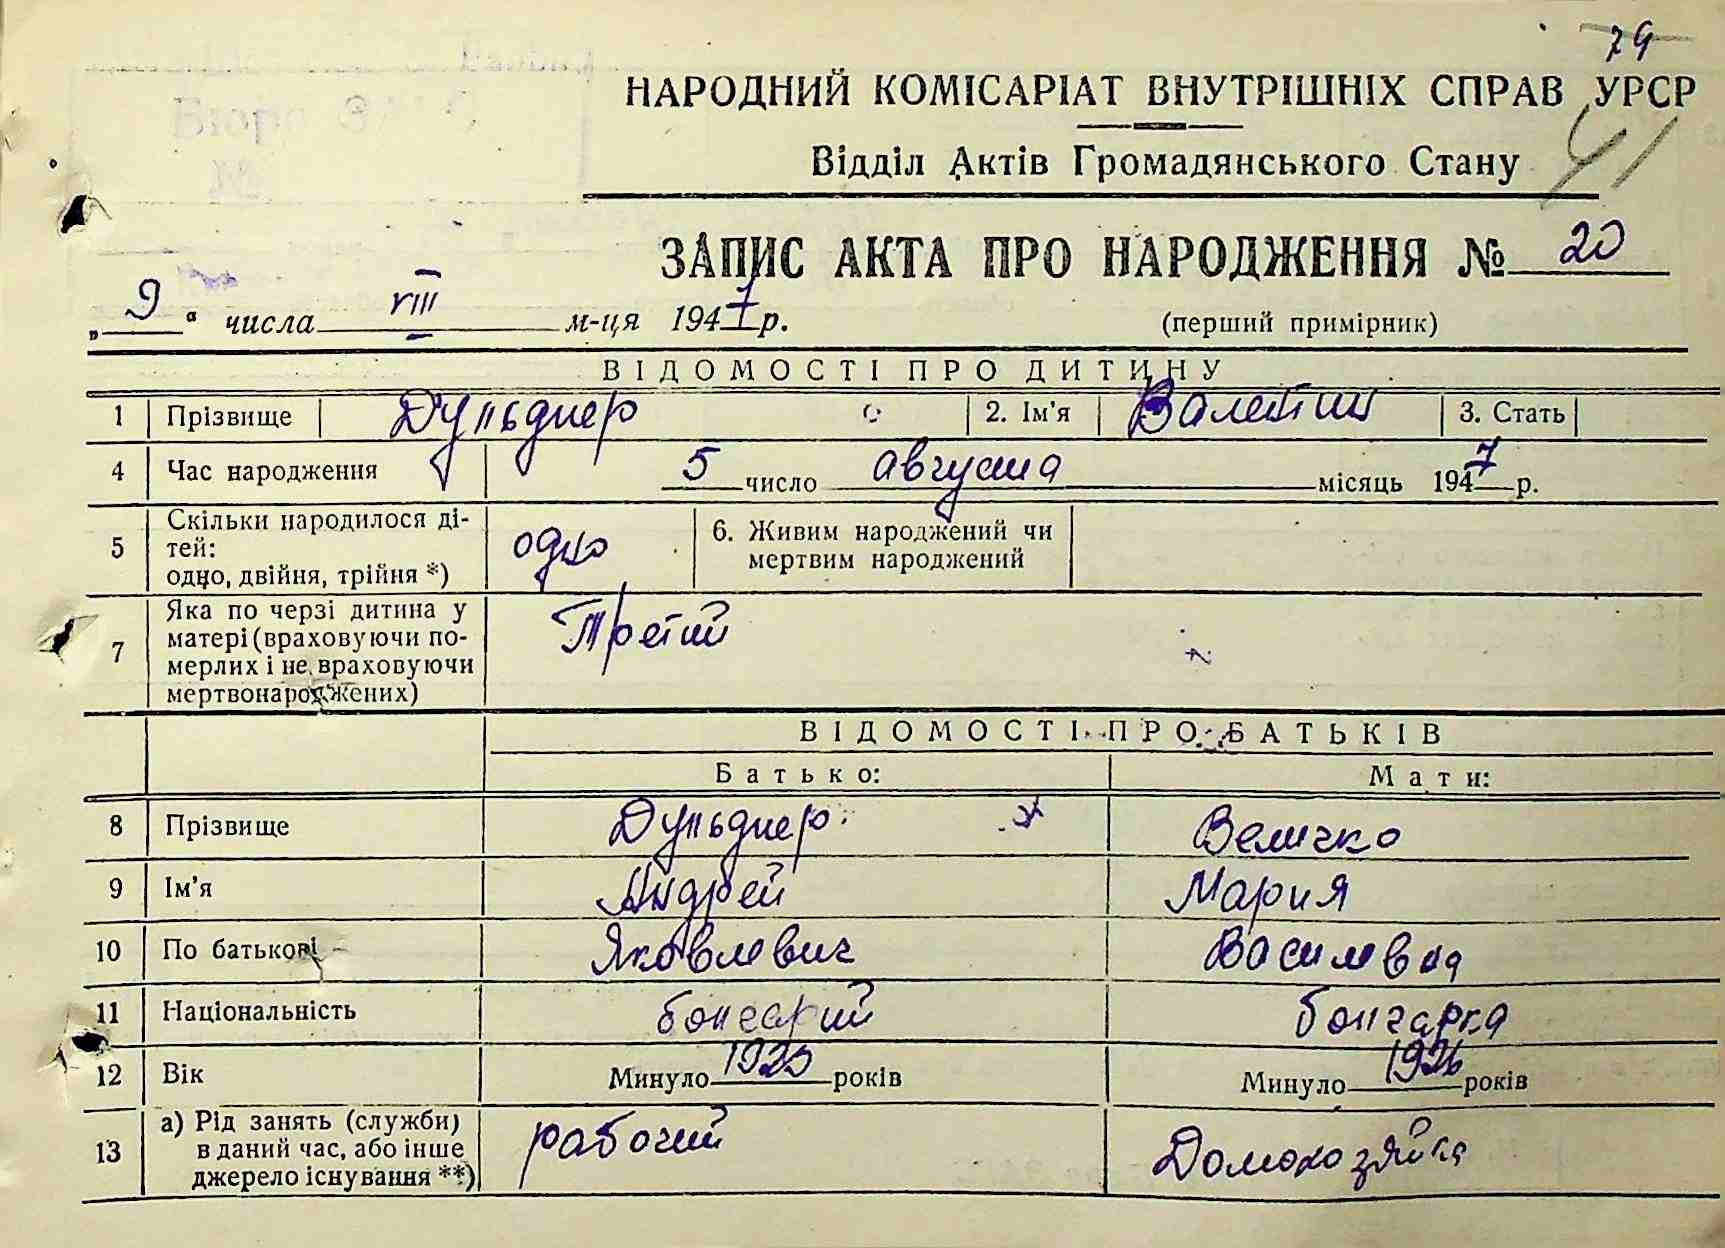 79
НАРОДНИЙ КОМІСАРІАТ ВНУТРІШНІХ СПРАВ УРСР
41
Відділ Актів Громадянського Стану
ЗАПИС АКТА ПРО НАРОДЖЕННЯ № 20
„9“ числа VIII м-ця 1947 р. (перший примірник)
ВІДОМОСТІ ПРО ДИТИНУ
1 Прізвище Дульднер 2. Ім'я Валентин 3. Стать
4 Час народження 5 число августа місяць 1947 р.
5 Скільки народилося ді-
тей:
одно, двійня, трійня *) одно 6. Живим народжений чи
мертвим народжений
7 Яка по черзі дитина у
матері (враховуючи по-
мерлих і не враховуючи
мертвонароджених) Третий
ВІДОМОСТІ ПРО БАТЬКІВ
Батько: Мати:
8 Прізвище Дульднер Величко
9 Ім'я Андрей Мария
10 По батькові Яковлевич Василевна
11 Національність бонгарий бонгарка
12 Вік Минуло 1925 років Минуло 1926 років
13 а) Рід занять (служби)
в даний час, або інше
джерело існування **) рабочий Домохозяйка